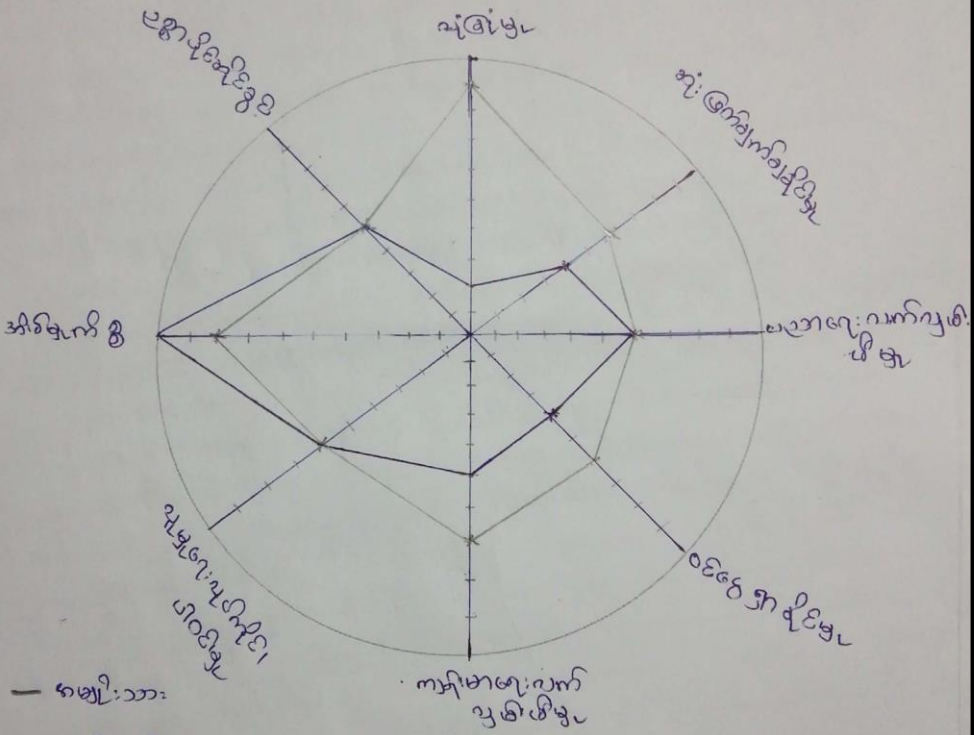 လုံခြုံမှု
ဆုံးဖြတ်ချက်ချနိုင်မှု
ပညာရေးလက်လှမ်း
မီမှု
ဝင်ငွေရှာနိုင်မှု
ကျန်းမာရေးလက်
လှမ်းမီမှု
လူမှုရေးလုပ်ငန်း
ပါဝင်
အိမ်မှုကိစ္စ
ပိုင်ဆိုင်မှု
အမျိုးသား